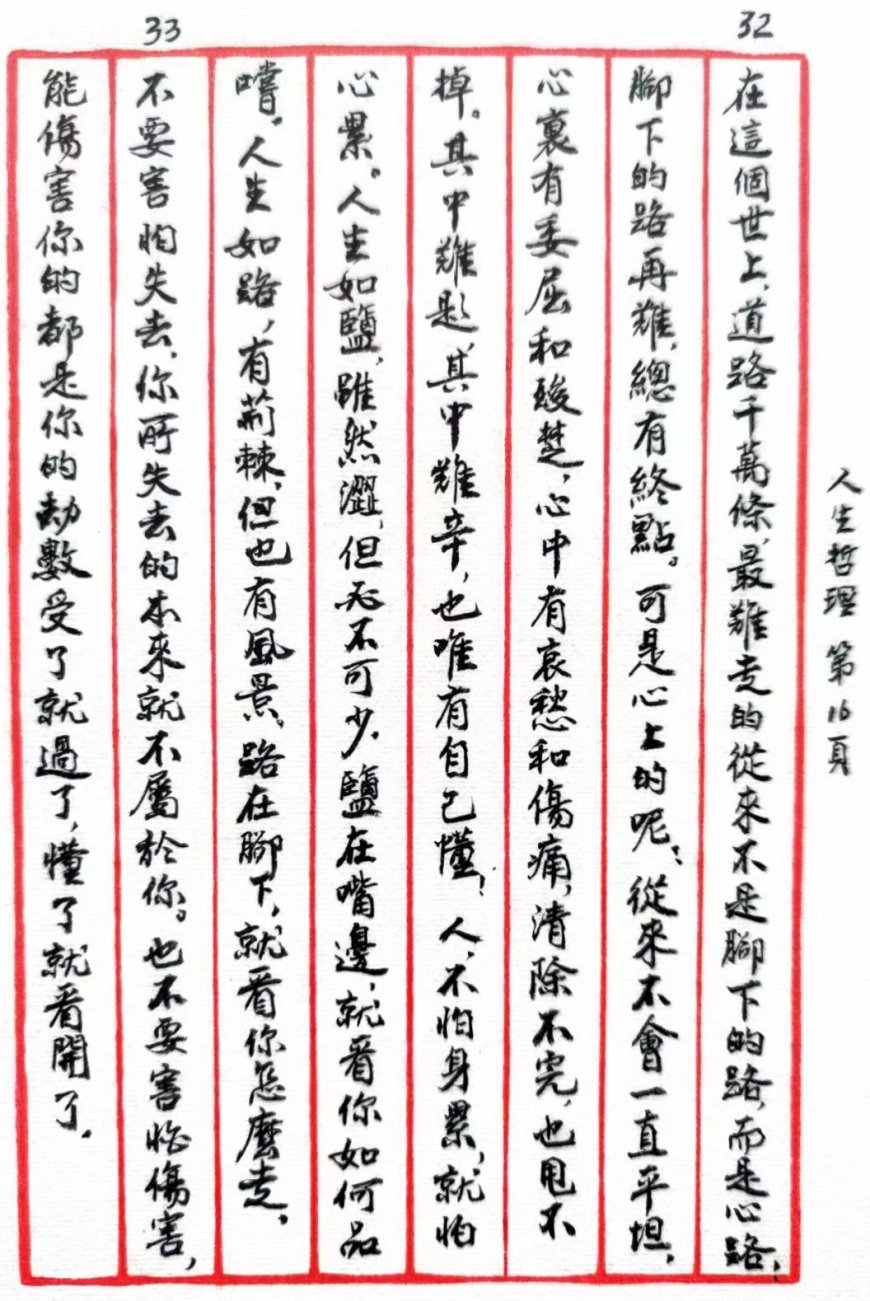 人生哲理 第16頁
32
在這個世上,道路千萬條,最難走的從來不是腳下的路,而是心路,
腳下的路再難,總有終點。可是心上的呢?從來不會一直平坦,
心裏有委屈和酸楚,心中有哀愁和傷痛,清除不完,也甩不
掉。其中難題,其中難辛,也唯有自己懂!人,不怕身累,就怕
心累。人生如鹽,雖然澀,但必不可少,鹽在嘴邊,就看你如何品
嚐。人生如路,有荊棘,但也有風景。路在腳下,就看你怎麽走,
33
不要害怕失去,你所失去的本來就不屬於你。也不要害怕傷害,
能傷害你的都是你的劫數受了就過了,懂了就看開了.